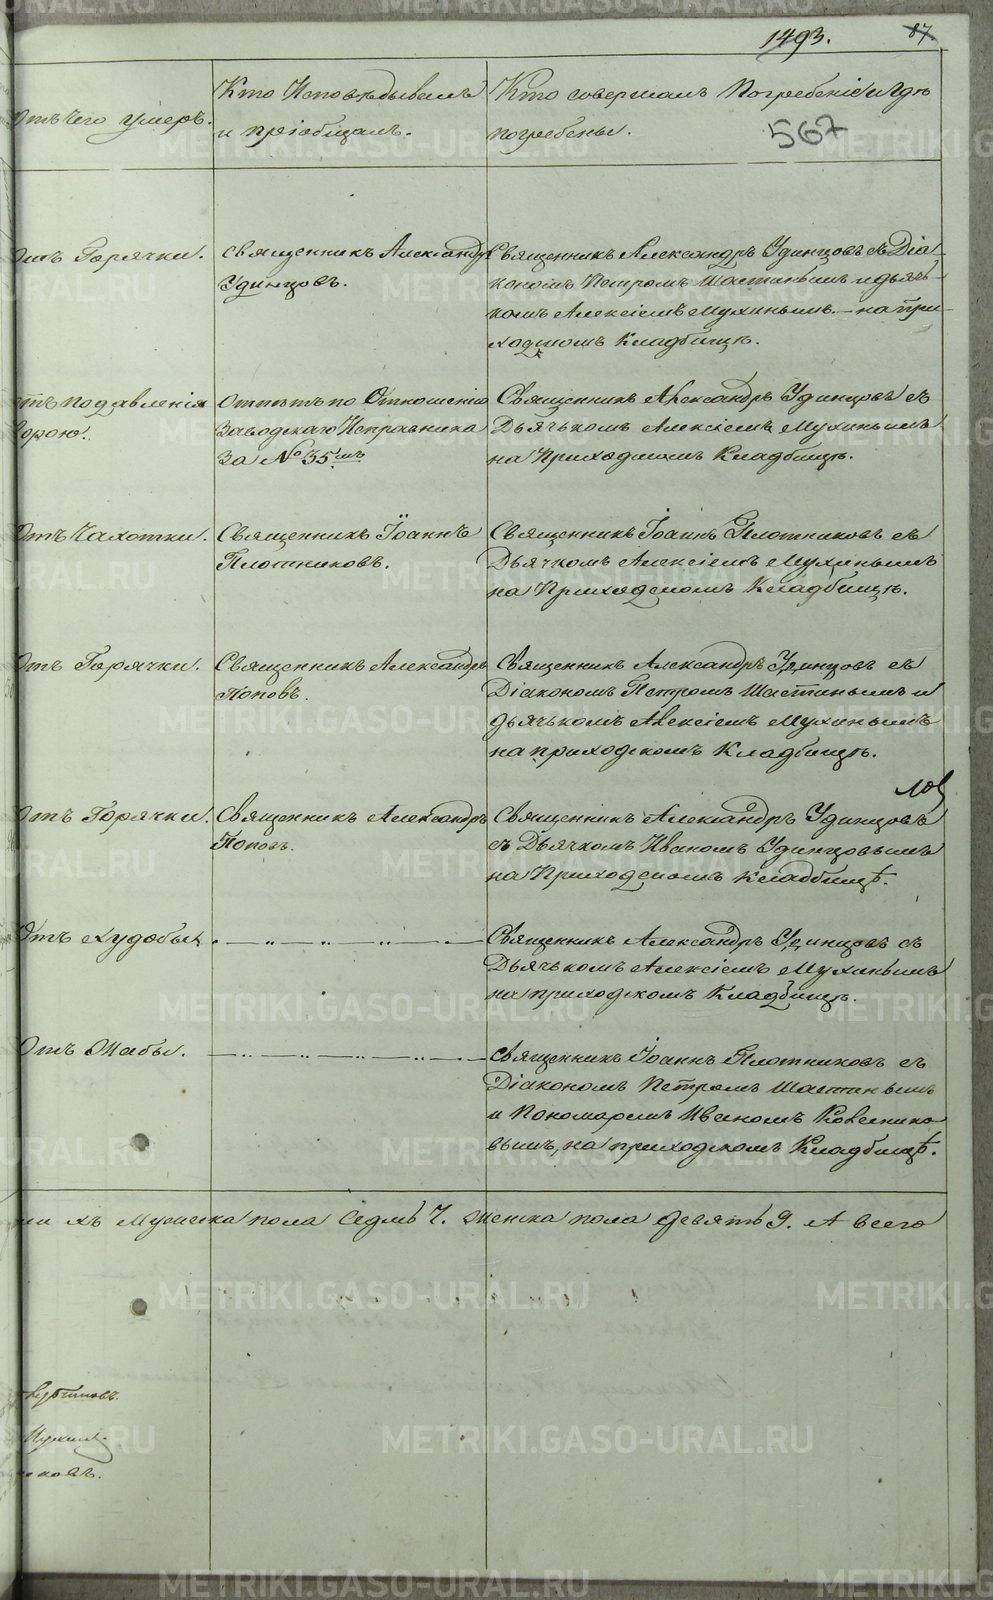 1493. 87.
567
Отъ Чего умеръ.
Кто Исповѣдывалъ
и пріобщалъ.
Кто совершалъ Погребеніе и гдѣ
погребены.
Отъ Горячки.
Священникъ Александръ
Удинцовъ.
Священникъ Александръ Удинцовъ съ Діа-
кономъ Петромъ Шастинымъ и дьяч-
комъ Алексіемъ Мухинымъ. на при-
ходскомъ Кладбищѣ.
отъ подавленія
Горою.
Отпѣтъ по Отношенію
Заводскаго Исправника
За № 35.мъ
Священникъ Александръ Удинцовъ съ
Дьячькомъ Алексіемъ Мухинымъ
на Приходскомъ Кладбищѣ.
Отъ Чахотки.
Священникъ Іоаннъ
Плотниковъ.
Священникъ Іоаннъ Плотниковъ съ
Дьячкомъ Алексіемъ Мухинымъ
на Приходскомъ Кладбищѣ.
Отъ Горячки.
Священникъ Александръ
Поповъ.
Священникъ Александръ Удинцовъ съ
Діакономъ Петромъ Шастинымъ и
дьячькомъ Алексіемъ Мухинымъ
на приходскомъ Кладбищѣ.
Отъ Горячки.
Священникъ Александръ
Поповъ.
Священникъ Александръ Удинцовъ
съ Дьячкомъ Иваномъ Удинцовымъ
на Приходскомъ Кладбищѣ.
Отъ Худобы
Священникъ Александръ Удинцовъ съ
Дьячькомъ Алексіемъ Мухинымъ
на приходскомъ Кладбищѣ.
Отъ Жабы.
Священникъ Іоаннъ Плотниковъ съ
Діакономъ Петромъ Шастинымъ
и Пономаремъ Иваномъ Колеснико
вымъ, на приходскомъ Кладбищѣ.
Мужеска пола Седмь 7. Женска пола девять 9. А всего
METRIKI.GASO-URAL.RU